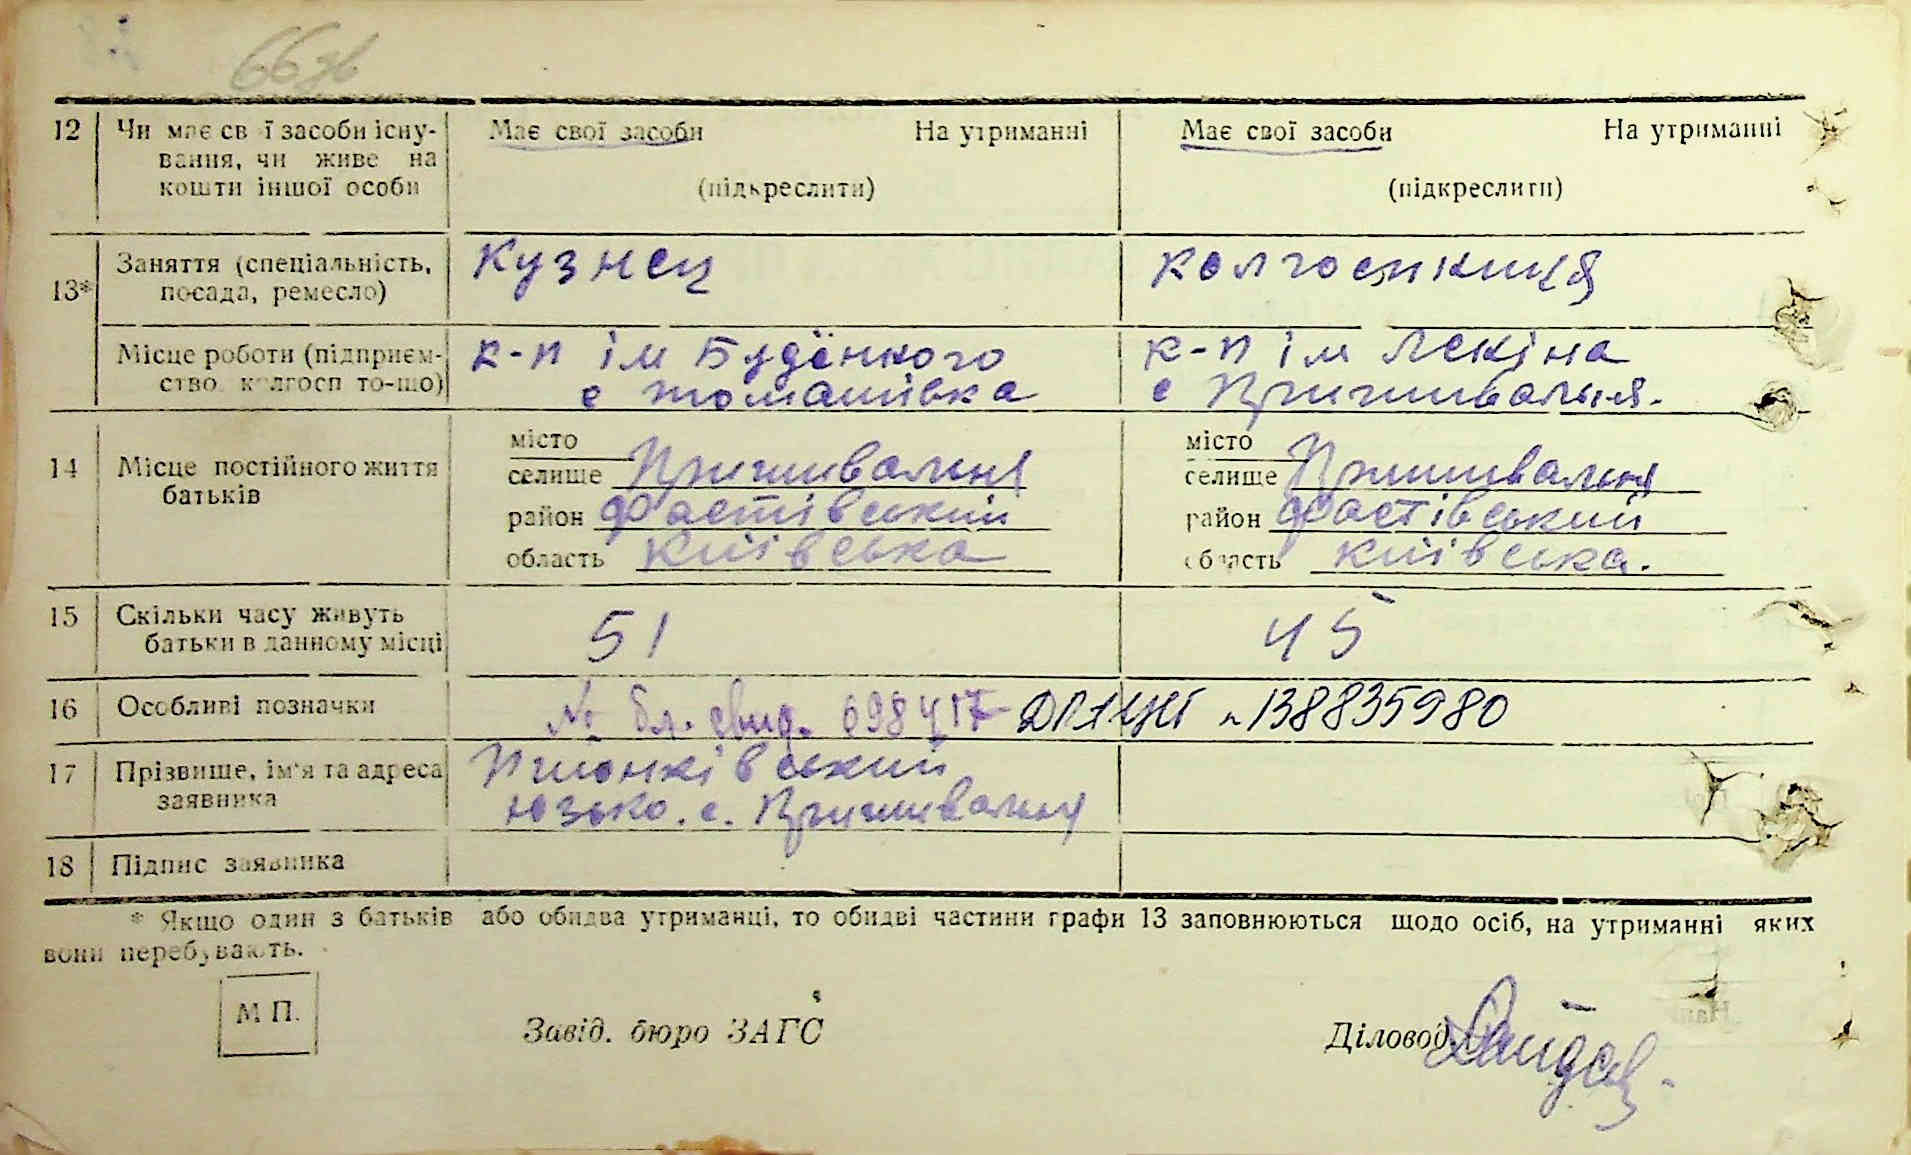 66зв
12 Чи має св ї засоби існу- Має свої засоби На утриманні Має свої засоби На утриманні
вання, чи живе на
кошти іншої особи (підкреслити) (підкреслити)
13* Заняття (спеціальність, Кузнец колгоспниця
посада, ремесло)
Місце роботи (підприєм- к-п ім Будённого к-п ім Леніна
ство. колгосп то-що) с томашівка с Пришивальня.
14 Місце постійного життя місто місто
батьків селище Пришивальня селище Пришивальня
район Фастівський район Фастівський
область Київська область Київська.
15 Скільки часу живуть 51 45
батьки в данному місці
16 Особливі позначки № бл. свид. 698417 № 138835980
17 Прізвище, ім'я та адреса Пионківський
заявника Юзько. с. Пришивальня
18 Підпис заявника
* Якщо один з батьків або обидва утриманці, то обидві частини графи 13 заповнюються щодо осіб, на утриманні яких
вони перебувають.
М П.
Завід. бюро ЗАГС Діловод